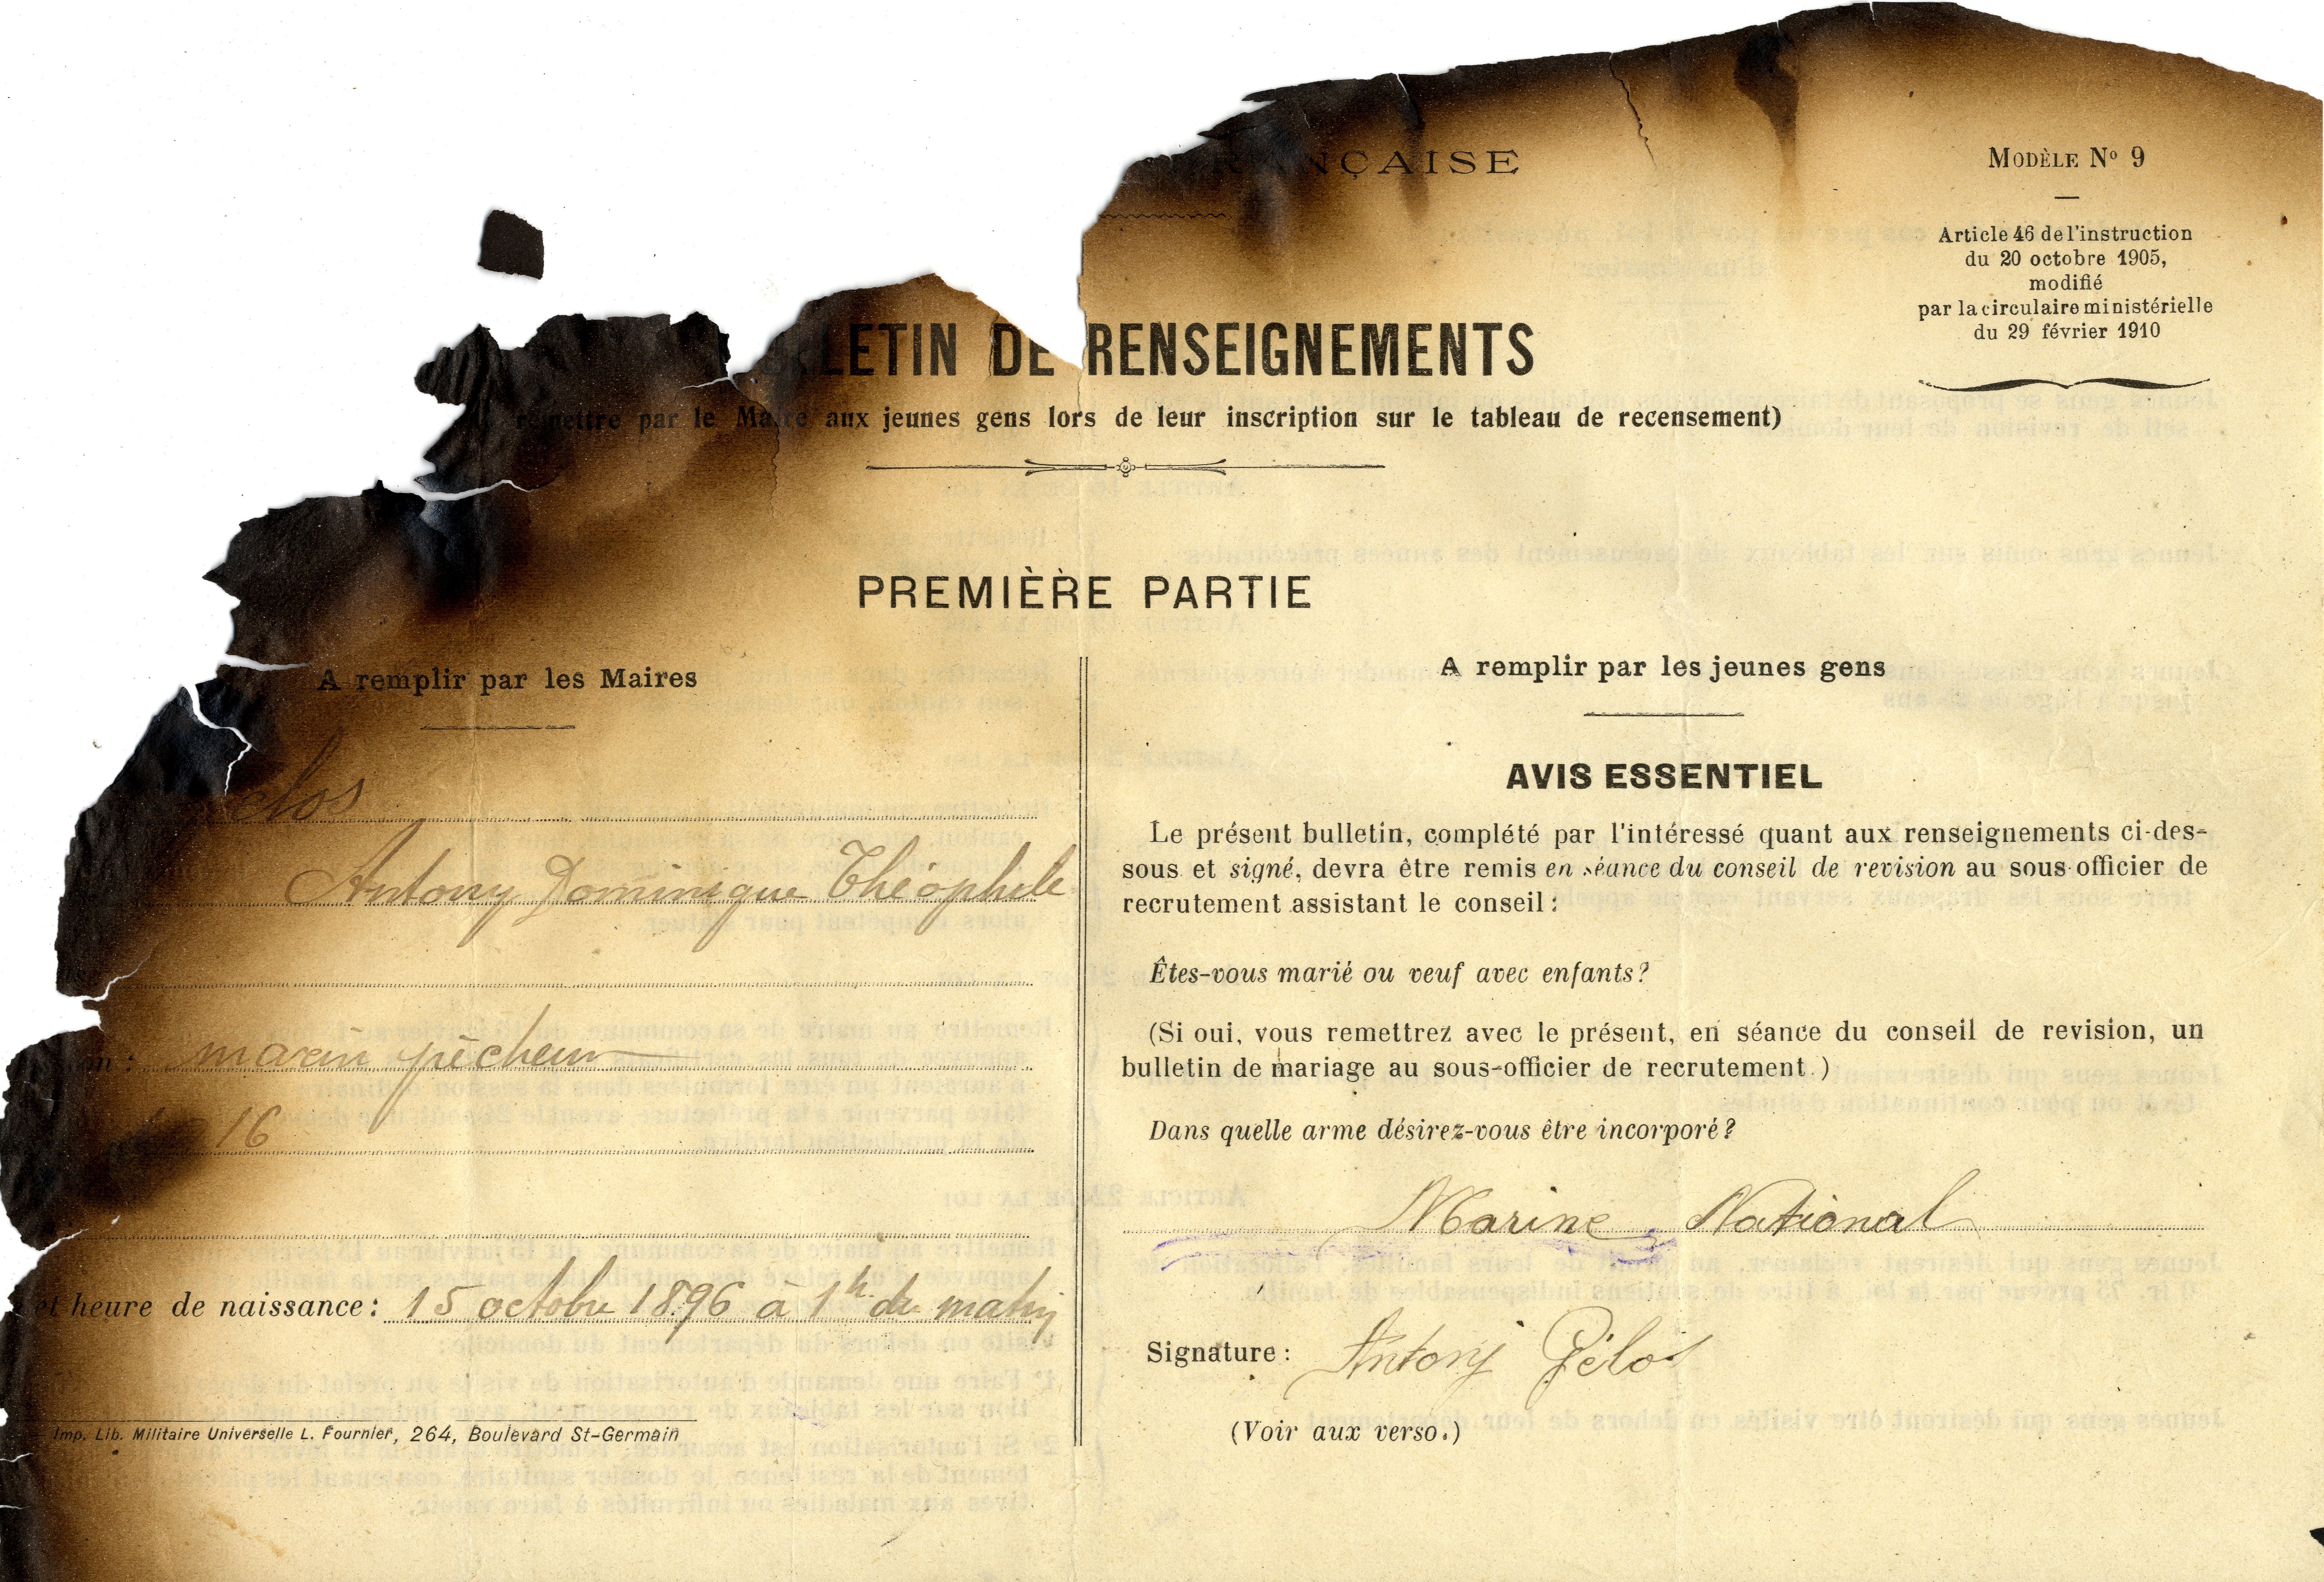 FRANÇAISE
MODÈLE Nº 9
Article 46 de l'instruction
du 20 octobre 1905,
modifié
par la circulaire ministérielle
du 29 février 1910
BULLETIN DE RENSEIGNEMENTS
remettre par le Maire aux jeunes gens lors de leur inscription sur le tableau de recensement)
PREMIÈRE PARTIE
A remplir par les Maires
elos
Antony Dominique Théophile
on : marin pêcheur
16
et heure de naissance : 15 octobre 1896 à 1h du matin
Imp. Lib. Militaire Universelle L. Fournier, 264, Boulevard St-Germain
A remplir par les jeunes gens
AVIS ESSENTIEL
Le présent bulletin, complété par l'intéressé quant aux renseignements ci-des-
sous et signé, devra être remis en séance du conseil de revision au sous-officier de
recrutement assistant le conseil :
Êtes-vous marié ou veuf avec enfants ?
(Si oui, vous remettrez avec le présent, en séance du conseil de revision, un
bulletin de mariage au sous-officier de recrutement.)
Dans quelle arme désirez-vous être incorporé ?
Marine National
Signature : Antony Pélos
(Voir aux verso.)